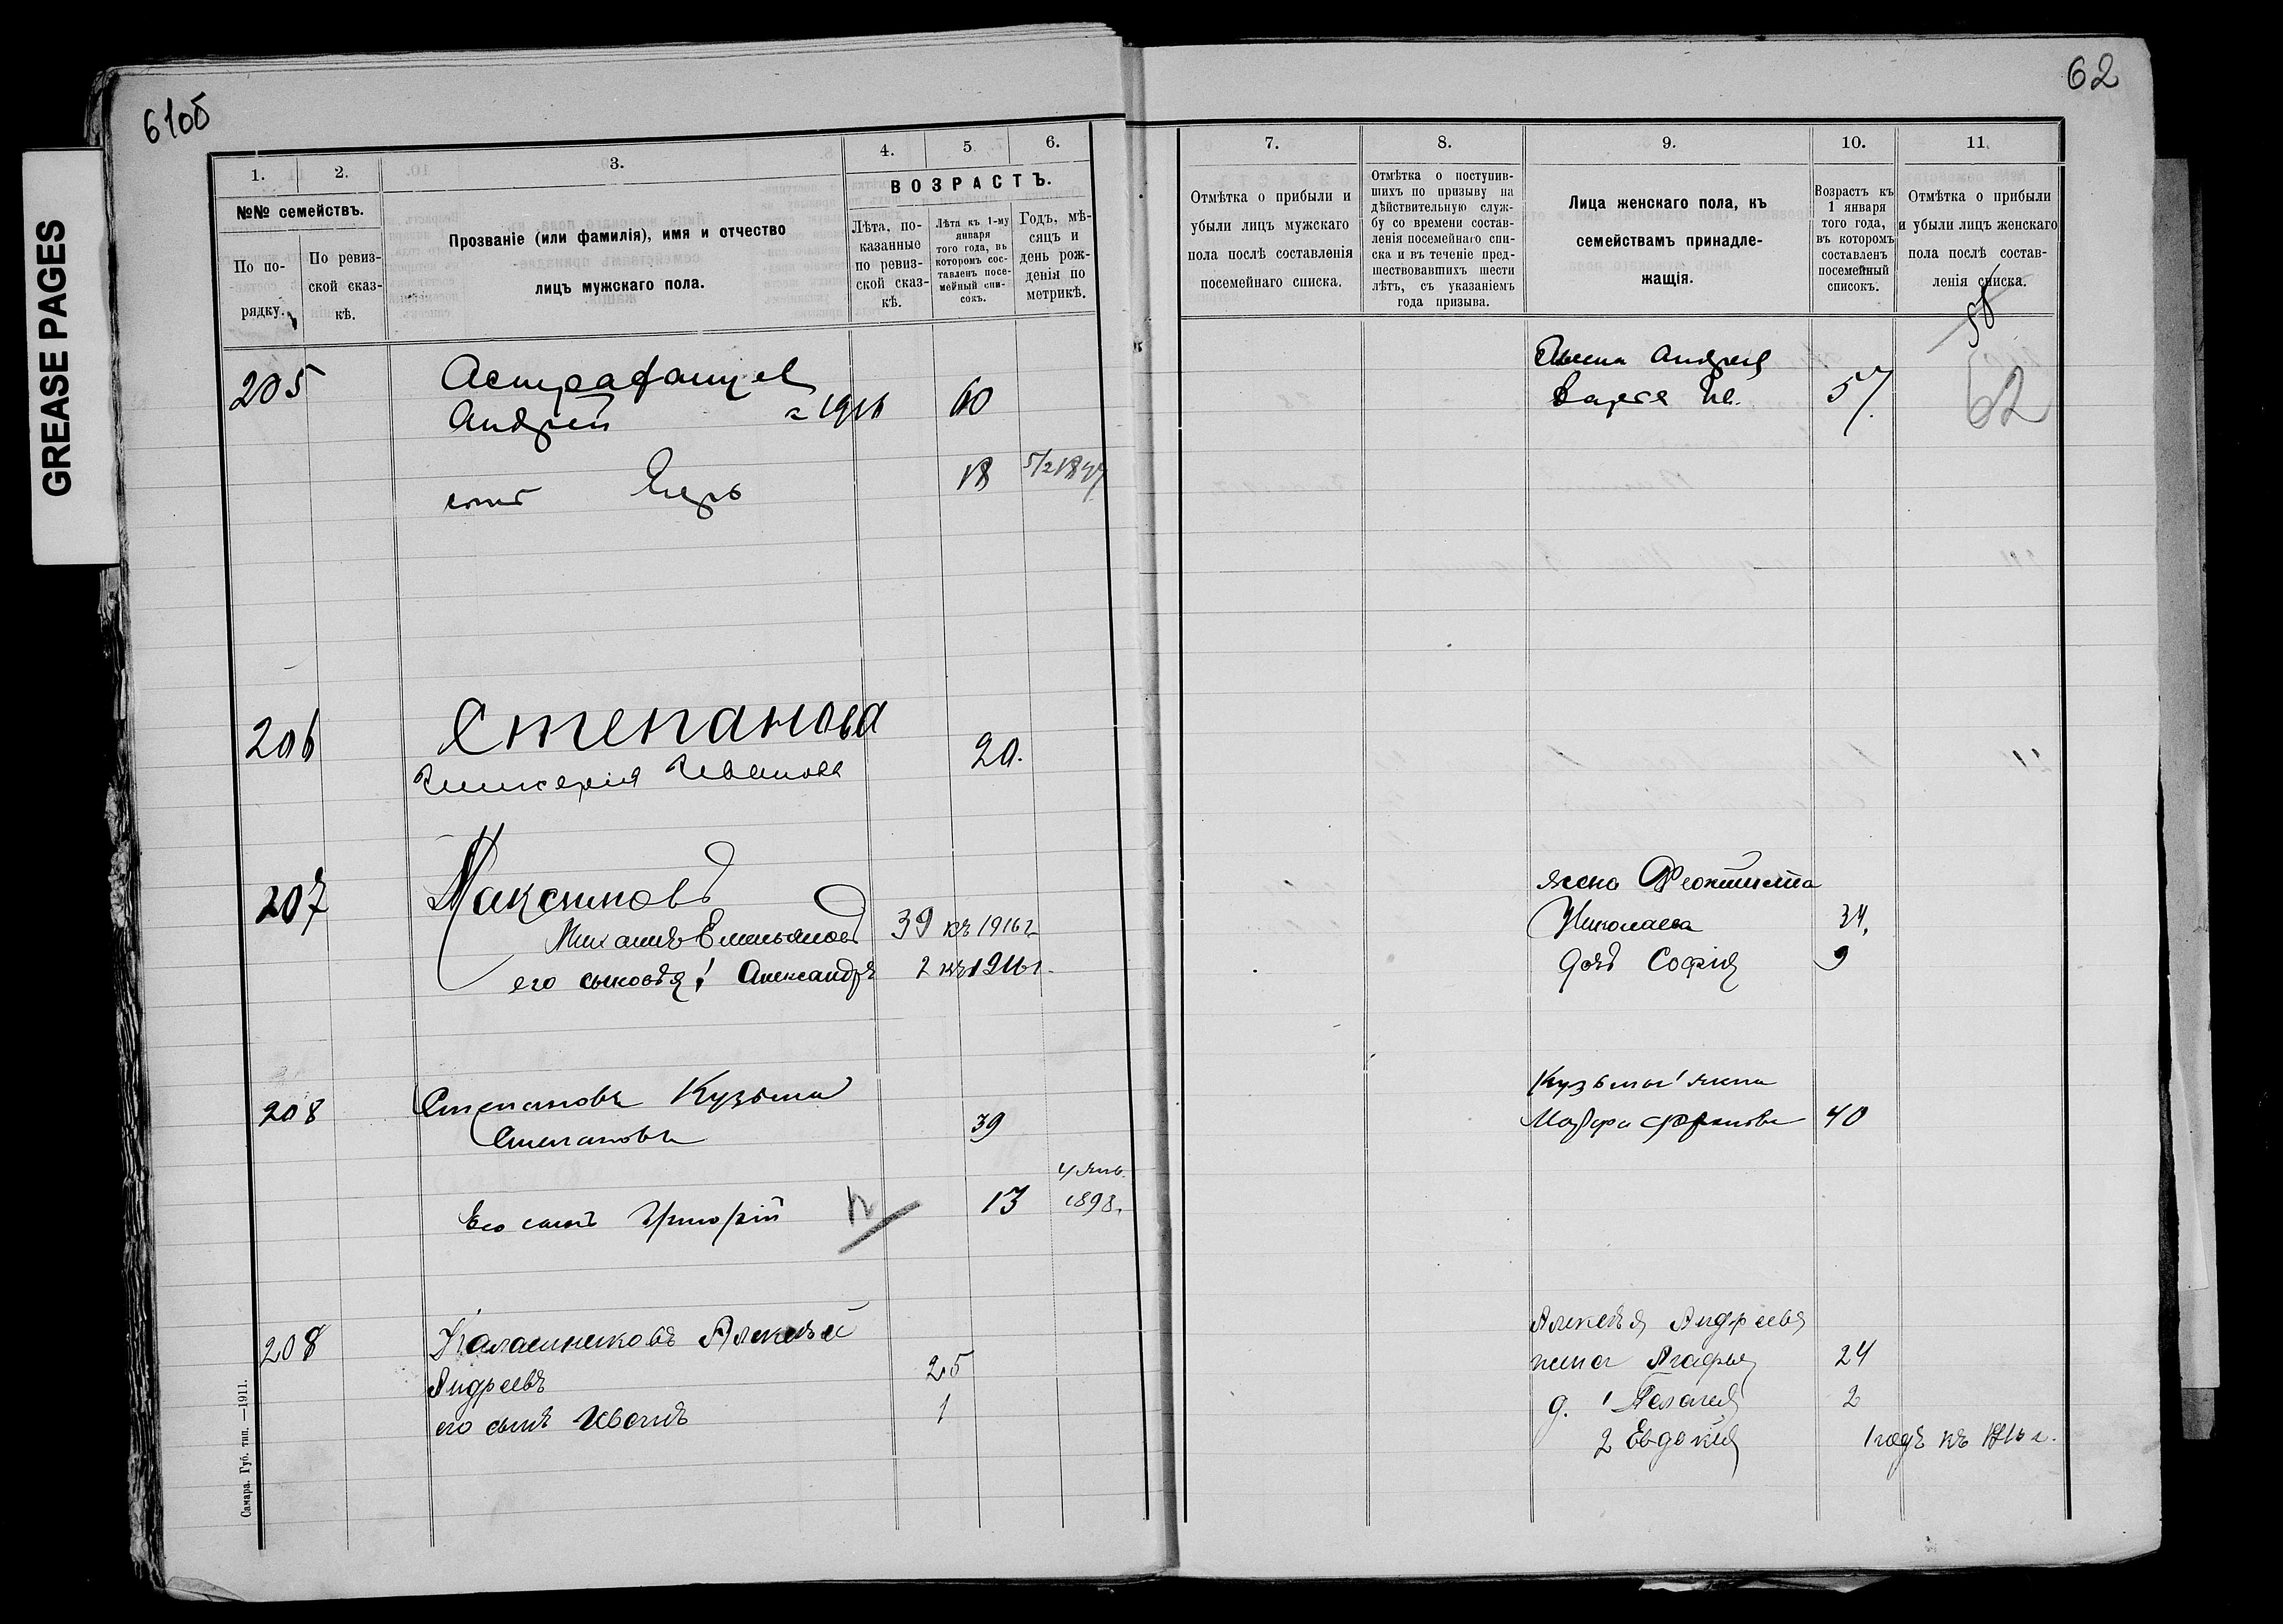 GREASE PAGES
61об
1.
2.
3.
4.
5
6.
№№ семействъ.
ВОЗРАСТЪ.
По по-
рядку.
По ревиз-
ской сказ-
кѣ.
Прозваніе (или фамилія), имя и отчество
лицъ мужскаго пола.
Лѣта, по-
казанные
по ревиз-
ской сказ-
кѣ.
Лѣта къ 1-му
января
того года, въ
которомъ сос-
тавленъ посе-
мейный спи-
сокъ.
Годъ, мѣ-
сяцъ и
день рож-
денія по
метрикѣ.
205
Андрей
1916
60
сынъ Егоръ
18
206
Степанова
Гликерія Иванова
20.
207
Максимовъ
Михаилъ Емельяновъ 39 къ 1916 г.
его сыновья: Александръ 2 къ 1916 г.
208
Степановъ Кузьма
Степановъ
39
4 янв.
Его сынъ Григорій
13
1898.
208
Калашниковъ Алексѣй
Андреевъ
25
его сынъ Иванъ
1
Самара. Губ. тип. —1911.
62
7.
8.
9.
10.
11.
Отмѣтка о прибыли и
убыли лицъ мужскаго
пола послѣ составленія
посемейнаго списка.
Отмѣтка о поступив-
шихъ по призыву на
дѣйствительную служ-
бу со времени состав-
ленія посемейнаго спи-
ска и въ теченіе пред-
шествовавшихъ шести
лѣтъ, съ указаніемъ
года призыва.
Лица женскаго пола, къ
семействамъ принадле-
жащія.
Возрастъ къ
1 января
того года,
въ которомъ
составленъ
посемейный
списокъ.
Отмѣтка о прибыли
и убыли лицъ женскаго
пола послѣ состав-
ленія списка.
58
62
57
жена Феоктиста
Николаева
34.
дочь Софія
9
Кузьмы жена
40
Алексѣя Андреева
жена Агафья
24
д. 1 Пелагея
2
2 Евдокия
1 годъ къ 1916 г.